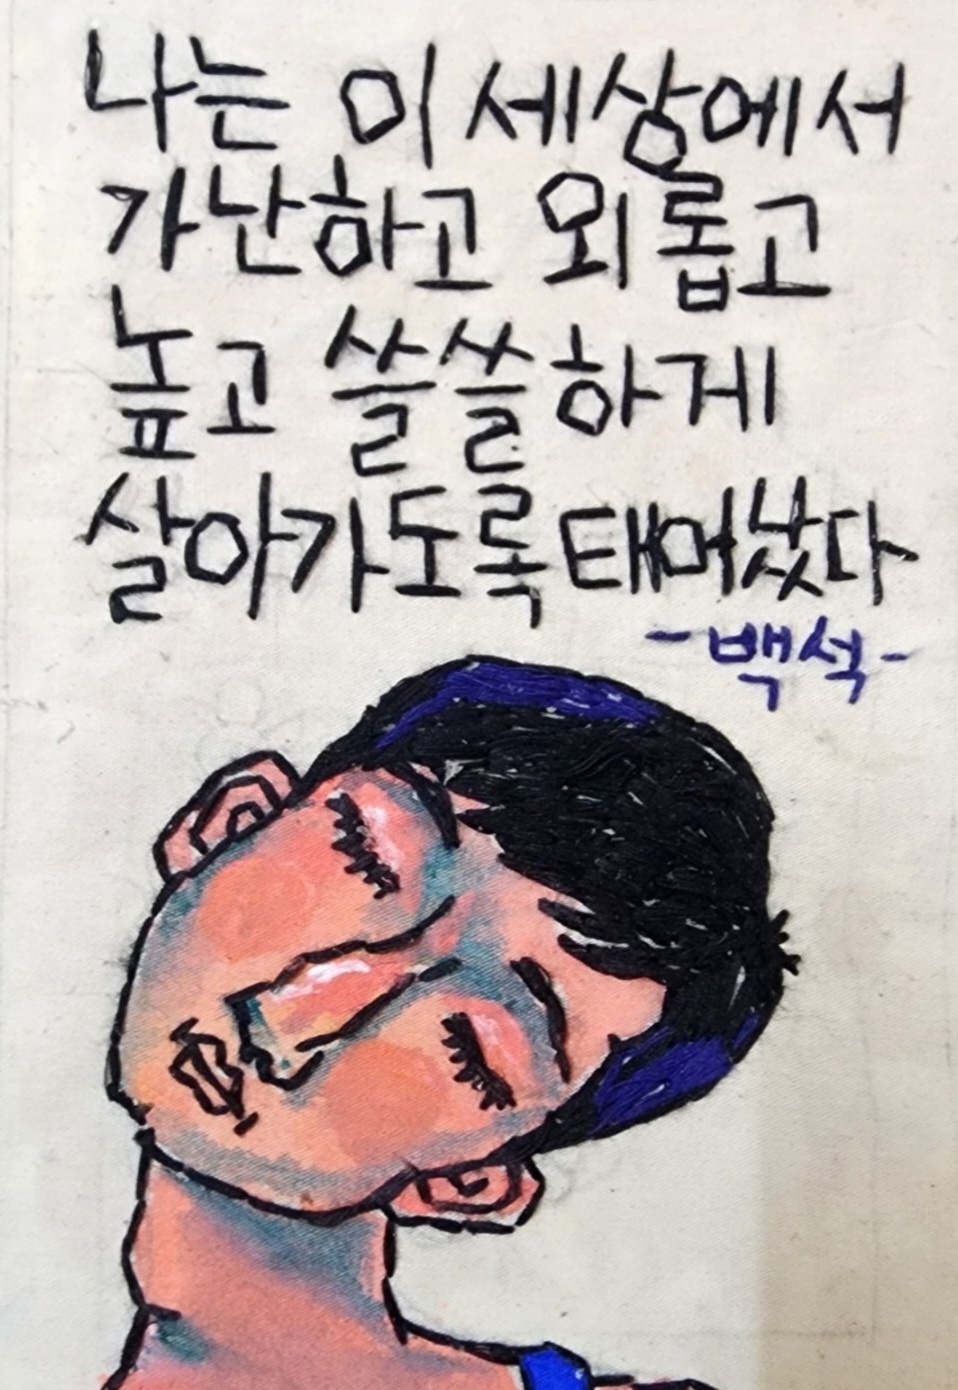 나는 이 세상에서
가난하고 외롭고
높고 쓸쓸하게
살아가도록 태어났다
-백석-